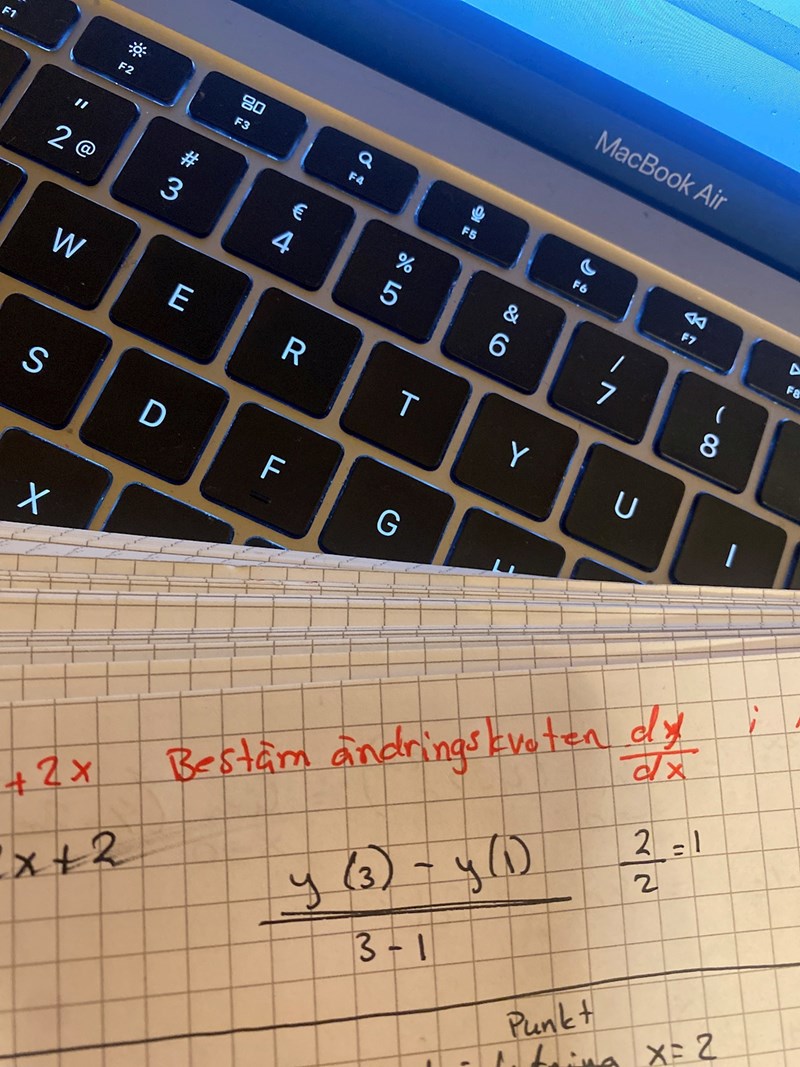 F1
F2
F3
F4
F5
F6
F7
F8
MacBook Air
" 2 @
# 3
€ 4
% 5
& 6
/ 7
( 8
W E R T Y U I
S D F G
X
+2x Bestäm ändringskvoten dy/dx i
x+2
y(3) - y(1)
3-1
2/2 = 1
Punkt
x=2